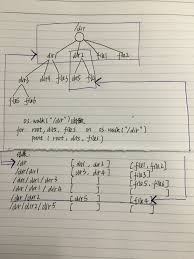 /dir
dir1 dir2 file1 file2
dir3 dir4 file3 dir5 file4
file5 file6
os.walk("/dir")
for root, dirs, files in os.walk("/dir")
print (root, dirs, files)
/dir [dir1, dir2] [file1, file2]
/dir/dir1 [dir3, dir4] [file3]
/dir/dir1/dir3 [ ] [file5, file6]
/dir/dir1/dir4 [ ] [ ]
/dir/dir2 [dir5] [file4]
/dir/dir2/dir5 [ ] [ ]